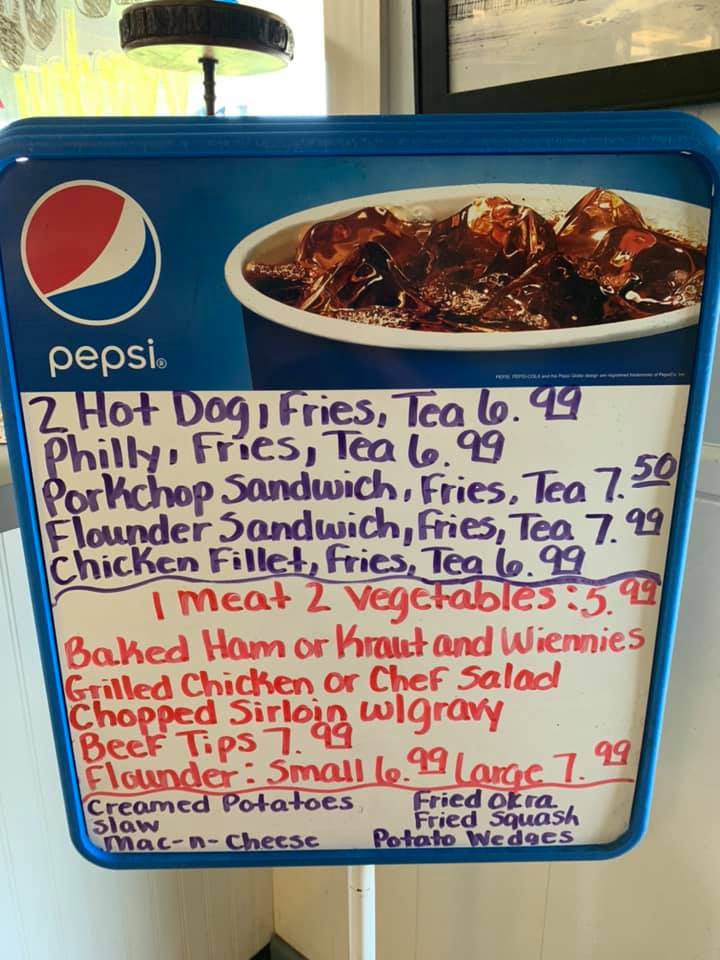 pepsi®
2 Hot Dog, Fries, Tea 6.99
Philly, Fries, Tea 6.99
Porkchop Sandwich, Fries, Tea 7.50
Flounder Sandwich, Fries, Tea 7.99
Chicken Fillet, Fries, Tea 6.99
1 meat 2 vegetables: 5.99
Baked Ham or Kraut and Wiennies
Grilled Chicken or Chef Salad
Chopped Sirloin w/gravy
Beef Tips 7.99
Flounder: Small 6.99 Large 7.99
Creamed Potatoes Fried Okra
Slaw Fried Squash
Mac-n-Cheese Potato Wedges